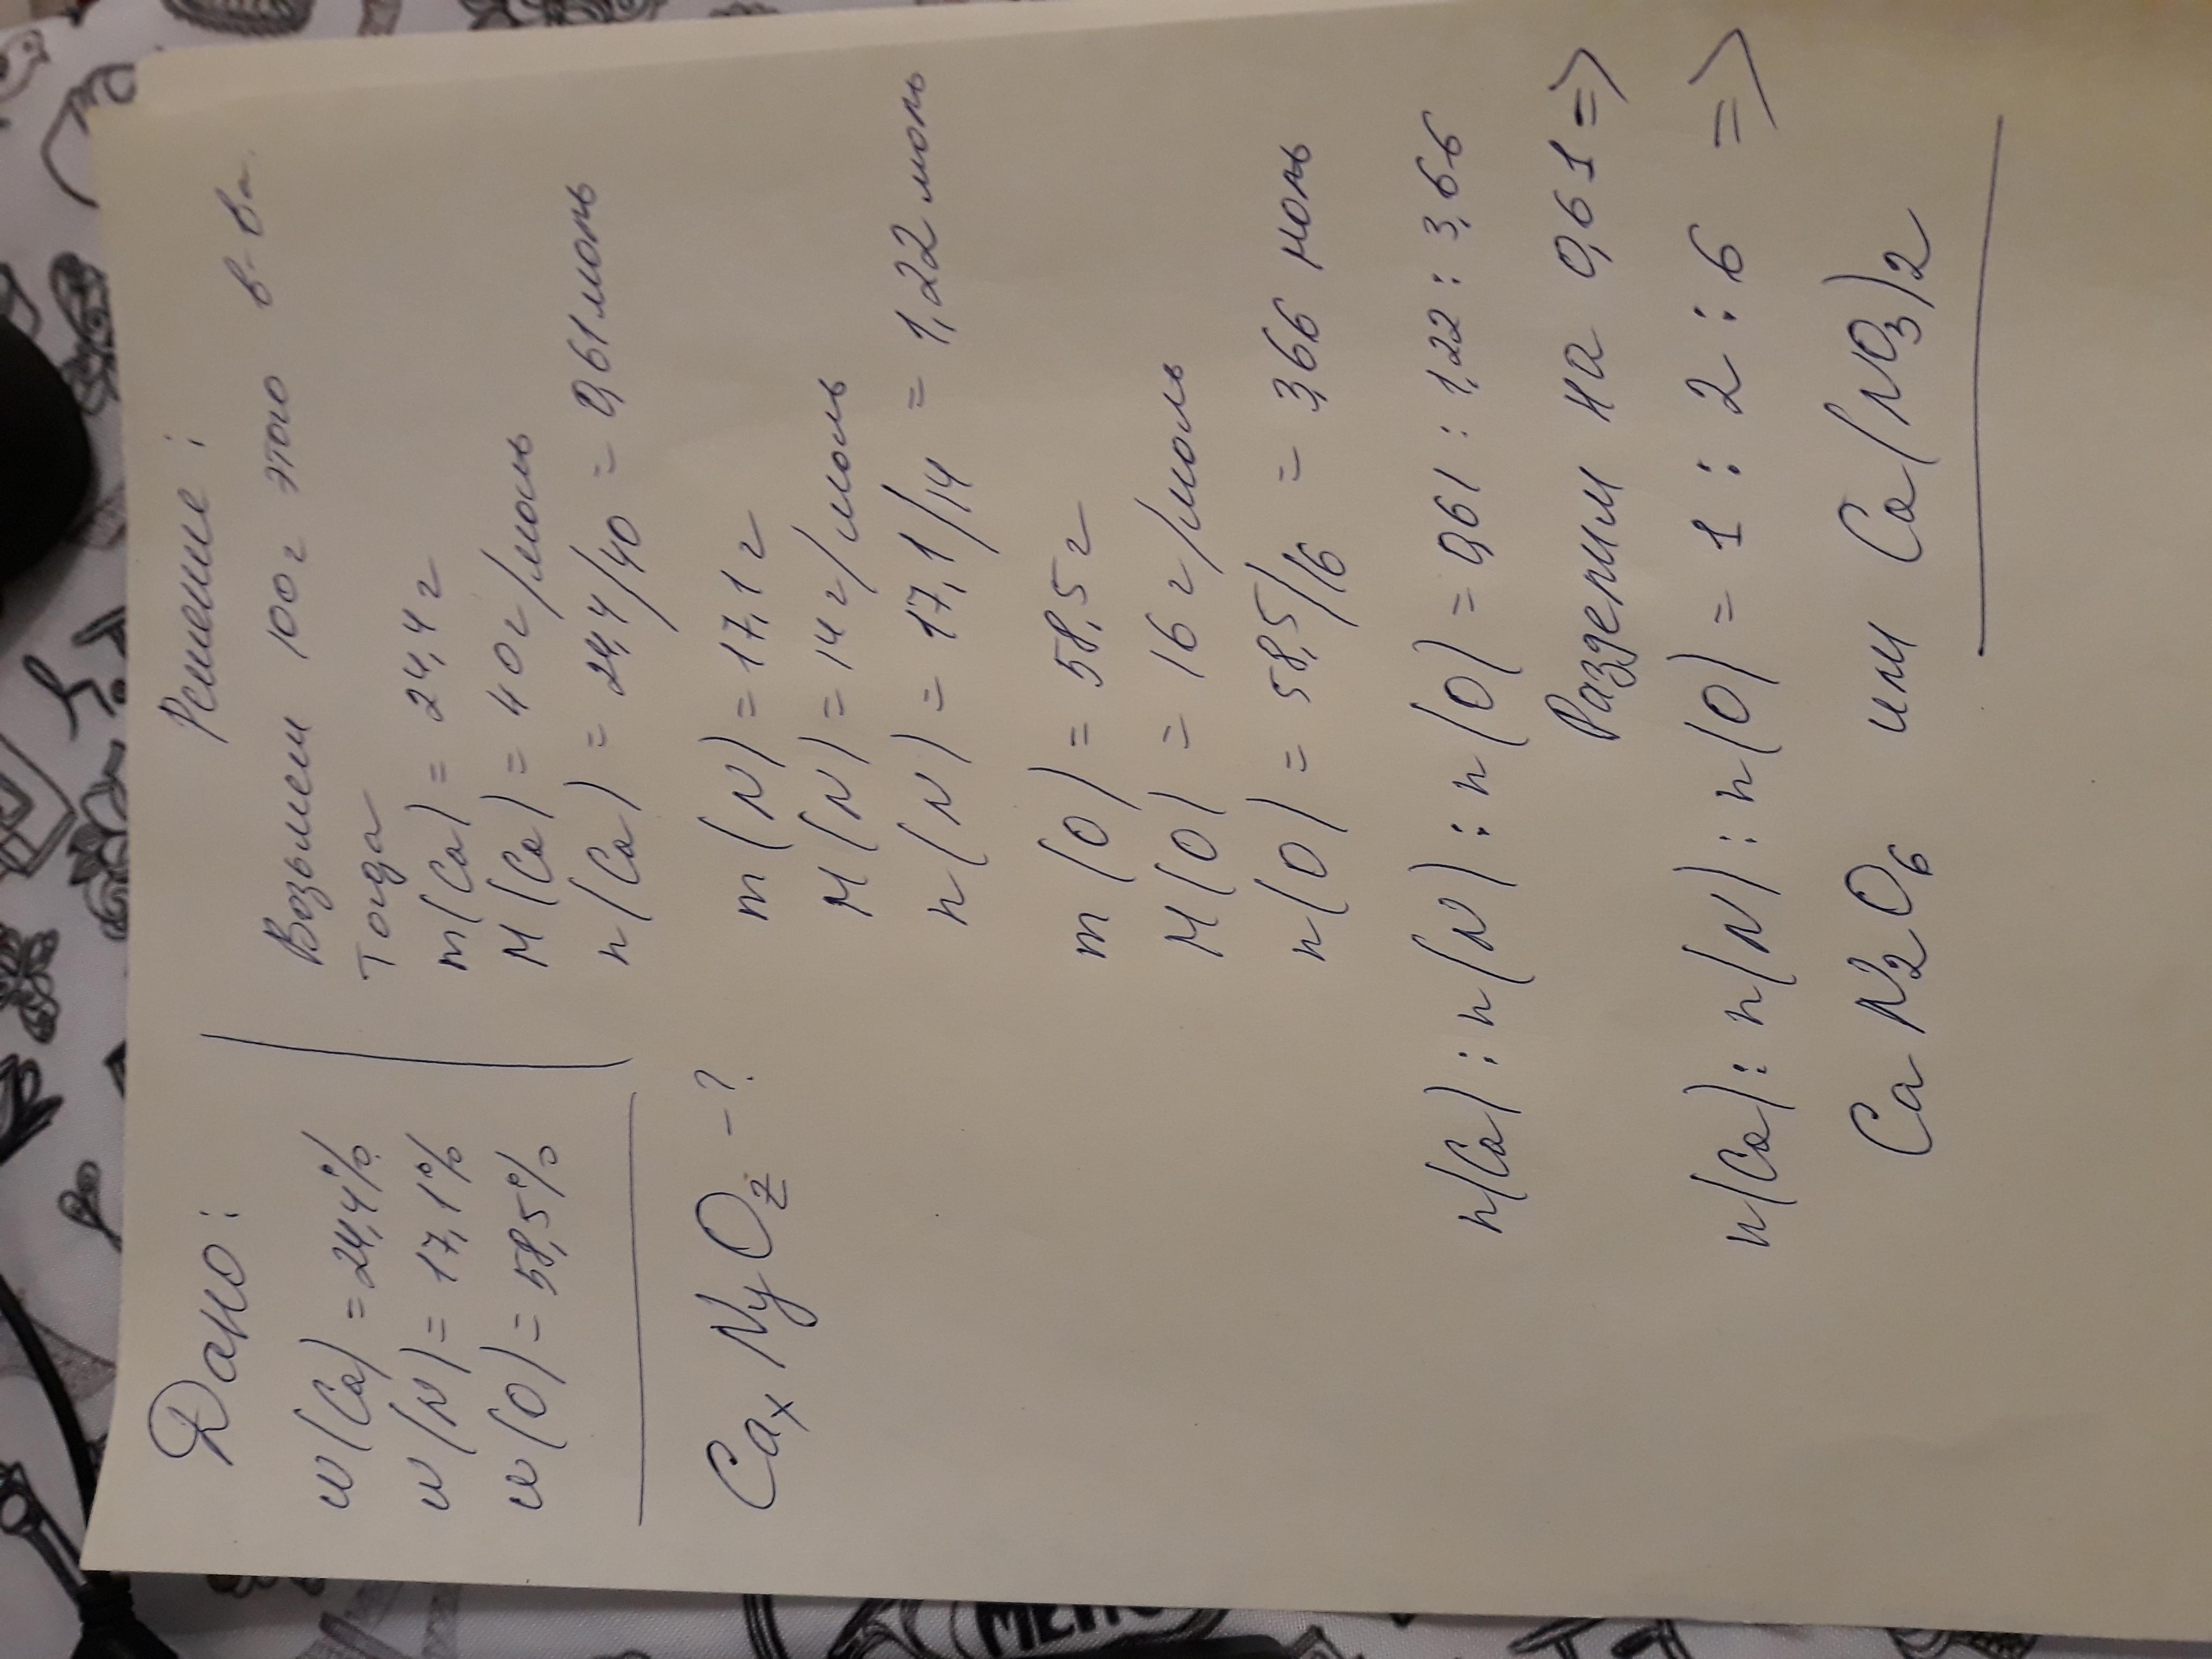 Дано:
w(Ca) = 24,4%
w(N) = 17,1%
w(O) = 58,5%
CaxNyOz - ?
Решение:
Возьмем 100 г этого в-ва.
Тогда
m(Ca) = 24,4 г
M(Ca) = 40 г/моль
n(Ca) = 24,4/40 = 0,61 моль
m(N) = 17,1 г
M(N) = 14 г/моль
n(N) = 17,1/14 = 1,22 моль
m(O) = 58,5 г
M(O) = 16 г/моль
n(O) = 58,5/16 = 3,66 моль
n(Ca) : n(N) : n(O) = 0,61 : 1,22 : 3,66
Разделим на 0,61 =>
n(Ca) : n(N) : n(O) = 1 : 2 : 6 =>
CaN2O6 или Ca(NO3)2